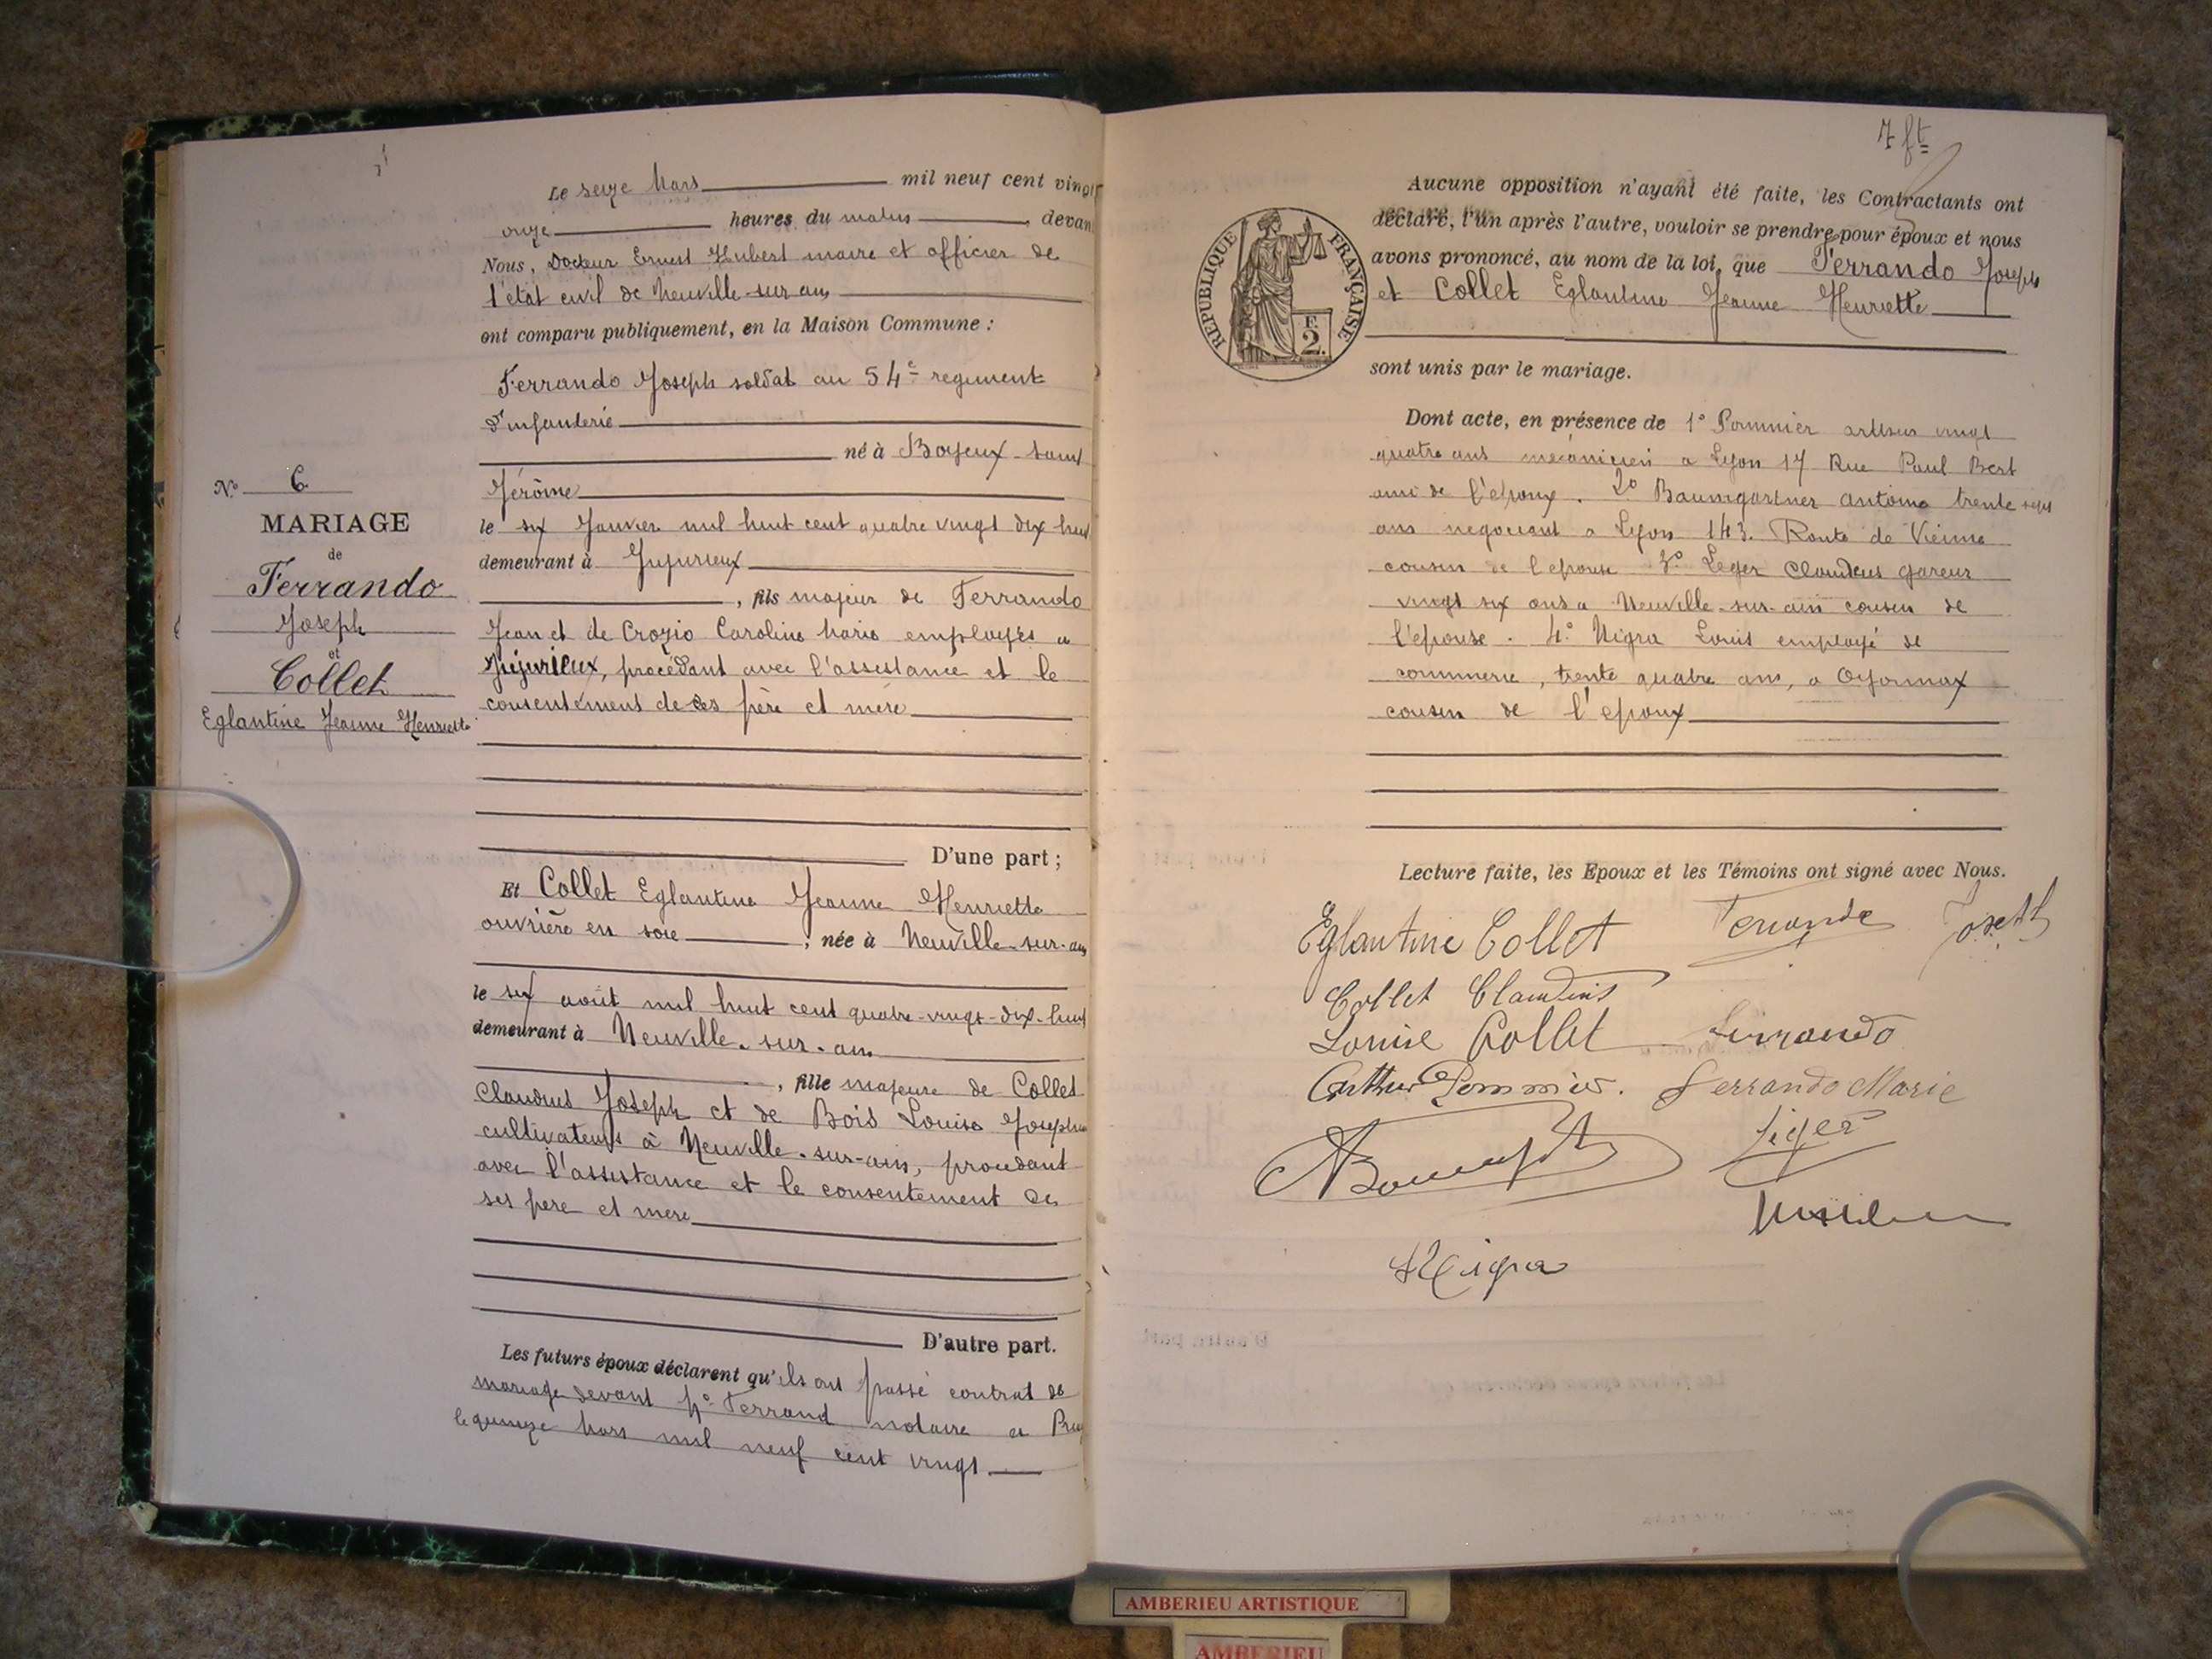 Le seize Mars mil neuf cent vingt
onze heures du matin, devant
Nous, Docteur Ernest Hubert maire et officier de
l'état civil de Neuville-sur-ain
ont comparu publiquement, en la Maison Commune :
Ferrando Joseph soldat au 54e regiment
d'infanterie
né à Boyeux-Saint
Jérôme
le six Janvier mil huit cent quatre vingt dix huit
demeurant à Jujurieux
, fils majeur de Ferrando
Jean et de Crozio Caroline Marie employés a
Jujurieux, procédant avec l'assistance et le
consentement de ses père et mère
D'une part ;
Et Collet Eglantine Jeanne Henriette
ouvrière en soie ; née à Neuville-sur-ain
le six août mil huit cent quatre-vingt-dix-huit
demeurant à Neuville-sur-ain
, fille majeure de Collet
Claudius Joseph et de Bois Louise Josephine
cultivateurs à Neuville-sur-ain, procedant
avec l'assistance et le consentement de
ses pere et mere
D'autre part.
Les futurs époux déclarent qu'ils ont passé contrat de
mariage devant Me Ferrand notaire a
le quinze Mars mil neuf cent vingt
No 6
MARIAGE
de
Ferrando
Joseph
et
Collet
Eglantine Jeanne Henriette
7 ft
REPUBLIQUE FRANÇAISE
E
2.
Aucune opposition n'ayant été faite, les Contractants ont
déclaré, l'un après l'autre, vouloir se prendre pour époux et nous
avons prononcé, au nom de la loi, que Ferrando Joseph
et Collet Eglantine Jeanne Henriette
sont unis par le mariage.
Dont acte, en présence de 1° Pommier vingt
quatre ans mécanicien a Lyon 17 Rue Paul Bert
ami de l'époux. 2° Baumgartner antoine trente sept
ans negociant a Lyon 143. Route de Vienne
cousin de l'epouse 3° Leger Claudius gareur
vingt six ans a Neuville-sur-ain cousin de
l'epouse. 4° Nigra Louis employé de
commerce, trente quatre ans, a Oyonnax
cousin de l'epoux
Lecture faite, les Epoux et les Témoins ont signé avec Nous.
Eglantine Collet Ferrando Joseph
Collet Claudius
Louise Collet Ferrando
Arthur Pommier. Ferrando Marie
Léger
Nigra
AMBERIEU ARTISTIQUE
AMBERIEU